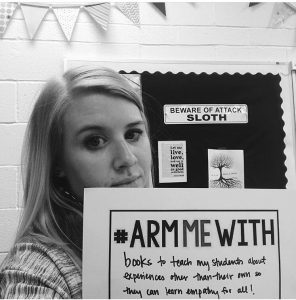 BEWARE OF ATTACK
SLOTH
Let me
live,
love,
well
#ARMMEWITH
books to teach my students about
experiences other than their own so
they can learn empathy for all!